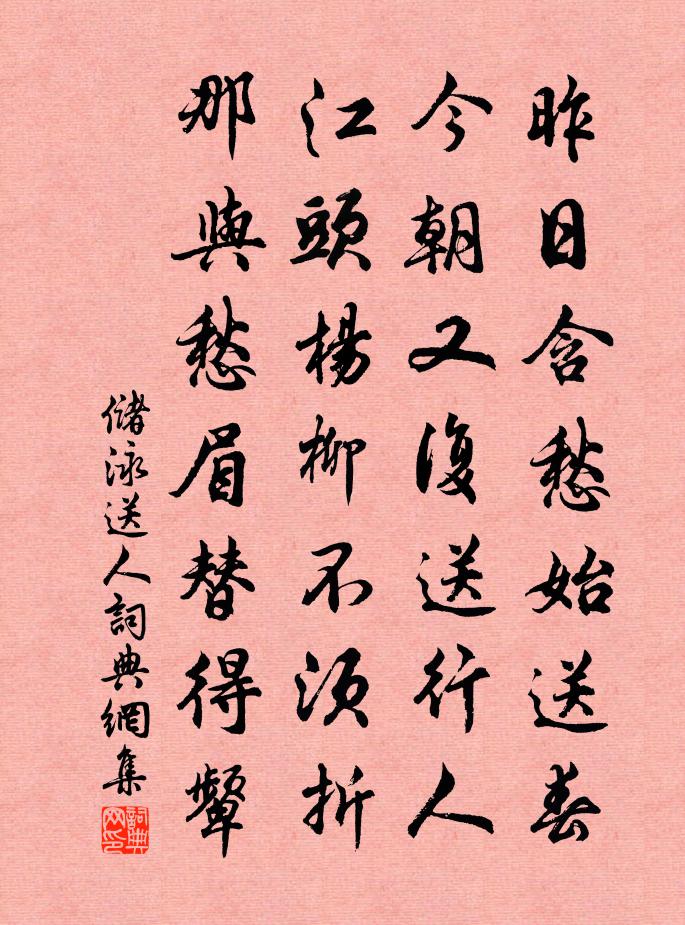 昨日含愁始送春
今朝又復送行人
江頭楊柳不須折
那與愁眉替得顰
儲泳送人詞典網集
詞典网印